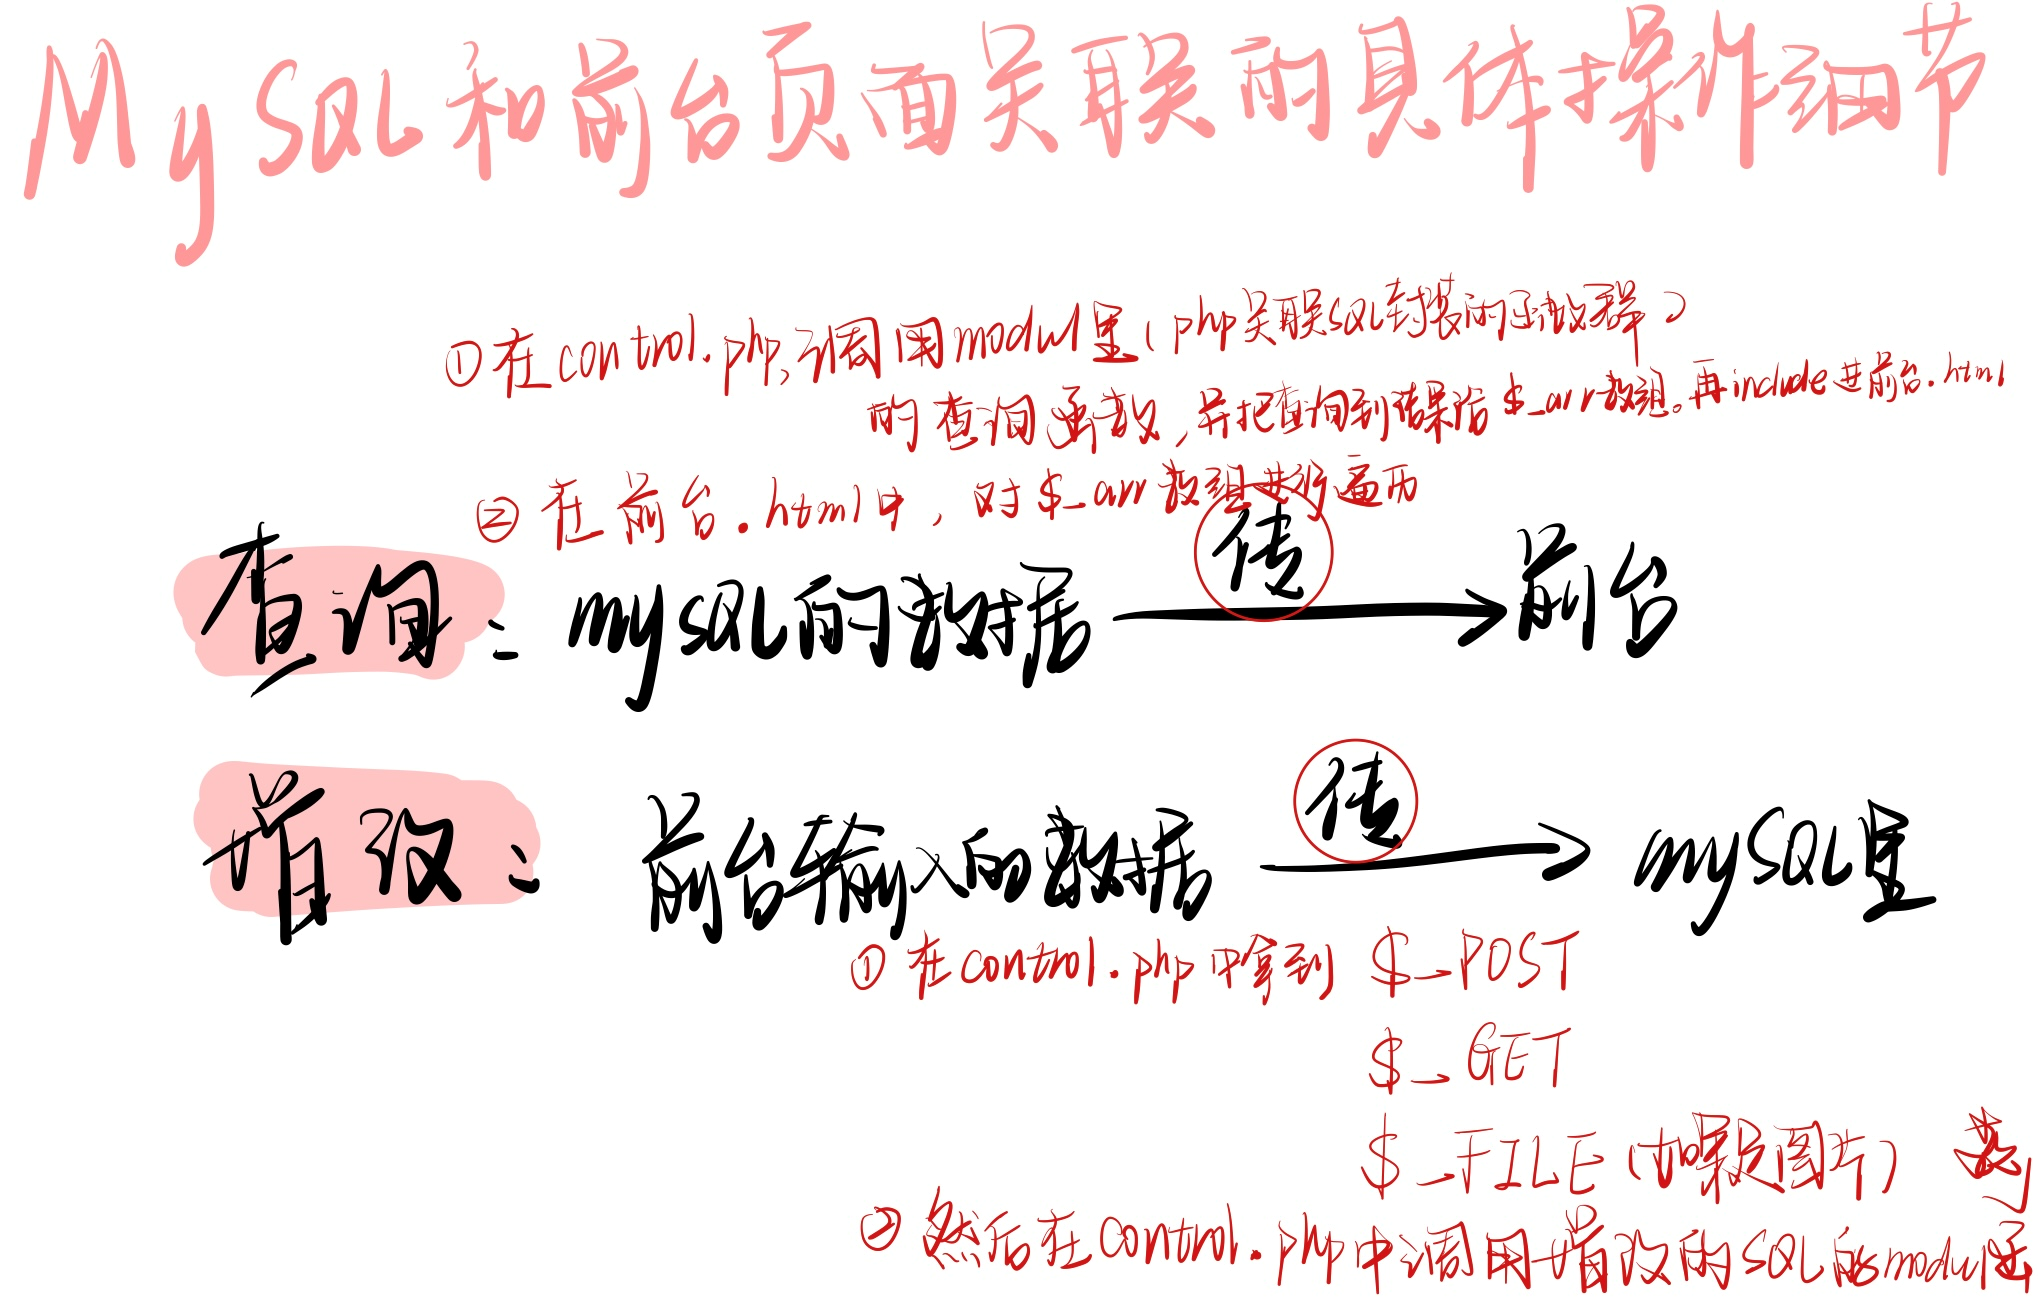 MySQL和前台页面关联的具体操作细节
①在control.php,调用modul里(php关联SQL封装的函数群)
的查询函数,并把查询到结果给$_arr数组。再include进前台.html
②在前台.html中,对$_arr数组进行遍历
查询: mySQL的数据 传 前台
增改: 前台输入的数据 传 mySQL里
①在control.php中拿到 $_POST
$_GET
$_FILE(如果是图片)
②然后在control.php中调用增改的SQL的modul函